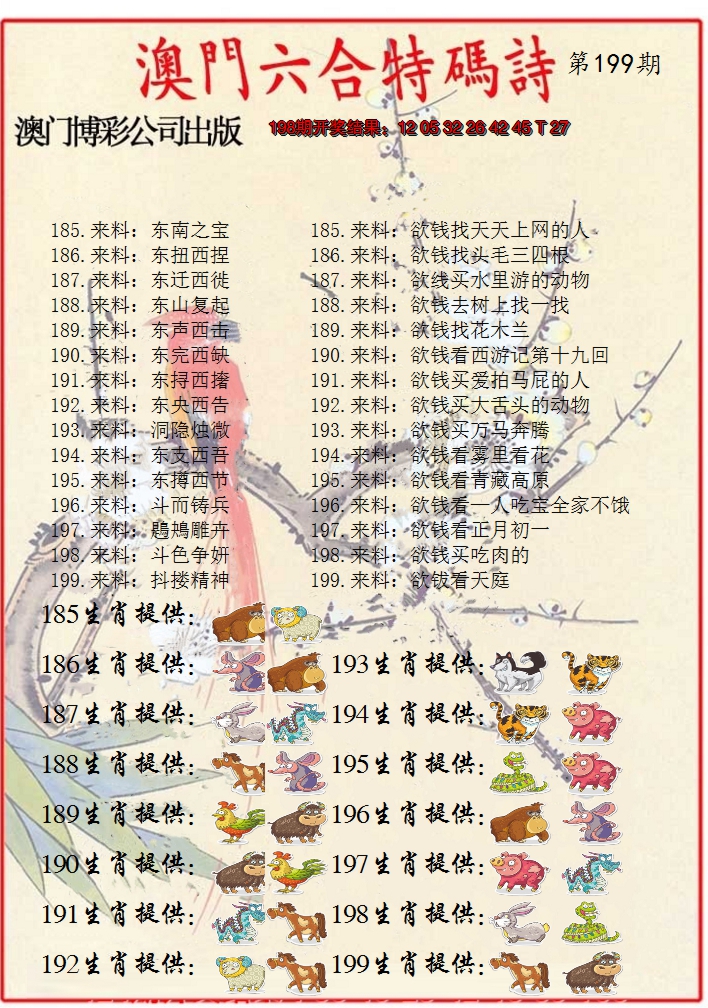 澳門六合特碼詩 第199期
澳门博彩公司出版 198期开奖结果：12 05 32 26 42 45 T 27
185.来料：东南之宝 185.来料：欲钱找天天上网的人
186.来料：东扭西捏 186.来料：欲钱找头毛三四根
187.来料：东迁西徙 187.来料：欲线买水里游的动物
188.来料：东山复起 188.来料：欲钱去树上找一找
189.来料：东声西击 189.来料：欲钱找花木兰
190.来料：东完西缺 190.来料：欲钱看西游记第十九回
191.来料：东挦西撦 191.来料：欲钱买爱拍马屁的人
192.来料：东央西告 192.来料：欲钱买大舌头的动物
193.来料：洞隐烛微 193.来料：欲钱买万马奔腾
194.来料：东支西吾 194.来料：欲钱看雾里看花
195.来料：东撙西节 195.来料：欲钱看青藏高原
196.来料：斗而铸兵 196.来料：欲钱看一人吃宝全家不饿
197.来料：雕卉 197.来料：欲钱看正月初一
198.来料：斗色争妍 198.来料：欲钱买吃肉的
199.来料：抖搂精神 199.来料：欲钹看天庭
185生肖提供：
186生肖提供： 193生肖提供：
187生肖提供： 194生肖提供：
188生肖提供： 195生肖提供：
189生肖提供： 196生肖提供：
190生肖提供： 197生肖提供：
191生肖提供： 198生肖提供：
192生肖提供： 199生肖提供：